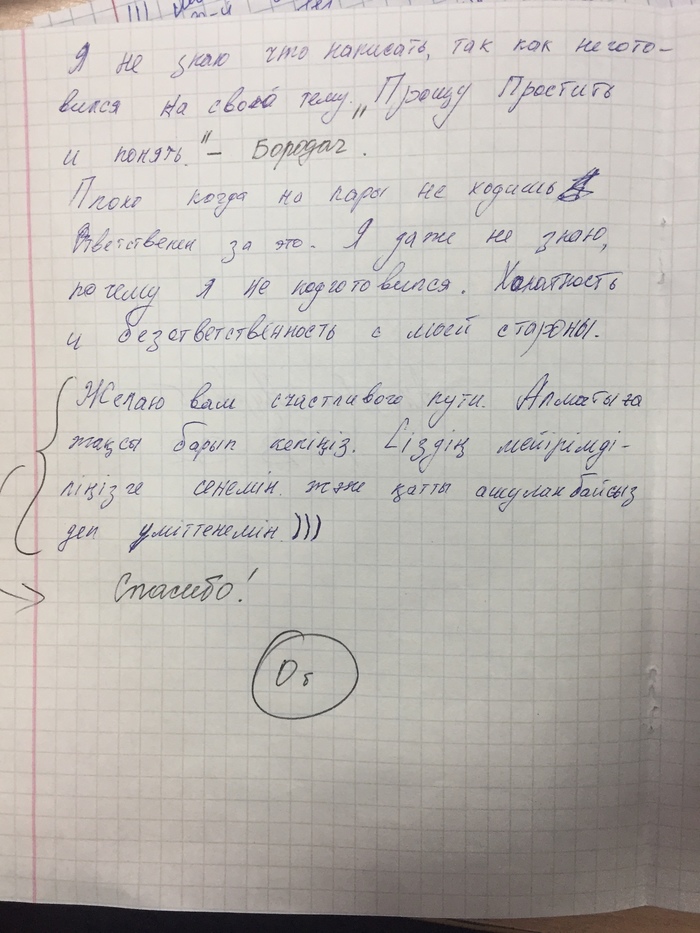 Я не знаю что написать, так как не гото-
вился на свою тему. "Прощу Простить
и понять." - Бородач.
Плохо когда на пары не ходишь
Ответственен за это. Я даже не знаю,
почему я не подготовился. Халатность
и безответственность с моей стороны.
Желаю вам счастливого пути. Алматыға
жақсы барып келіңіз. Сіздің мейірімді-
ліңізге сенемін. және қатты ашуланбайсыз
деп үміттенемін.)))
Спасибо!
0б